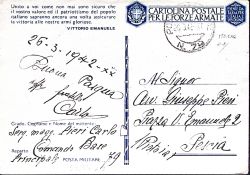 Unito a voi come non mai sono sicuro che
il vostro valore ed il patriottismo del popolo
italiano sapranno ancora una volta assicurare
la vittoria alle nostre armi gloriose.
VITTORIO EMANUELE
26-3-1942-XX
Buona Pasqua
Carlo
Grado, Cognome e Nome del mittente
Serg. magg. Pieri Carlo
Reparto Comando Base
Principale
POSTA MILITARE 79
CARTOLINA POSTALE
PER LE FORZE ARMATE
N. 79
Al Signor
Avv. Giuseppe Pieri
Piazza V. Emanuele 2